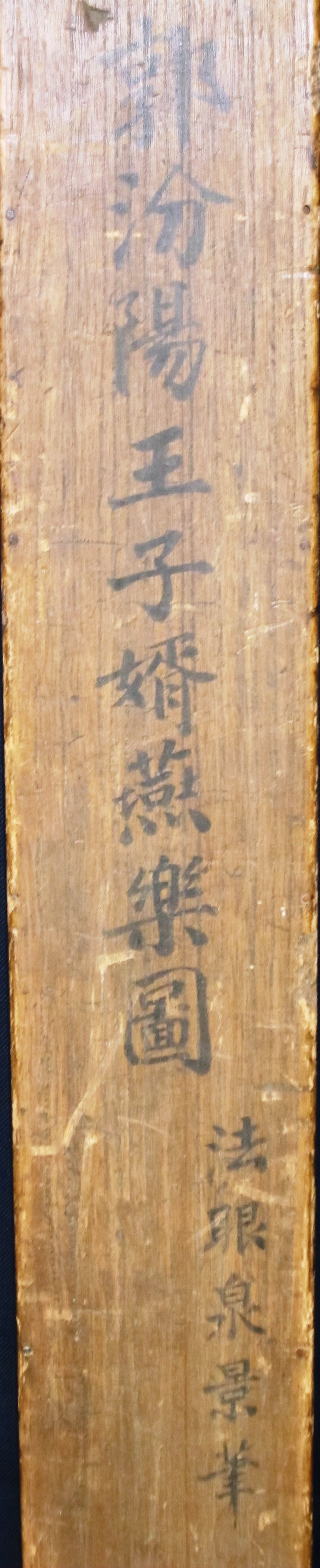 郭汾陽王子婿燕樂圖
法眼泉景筆